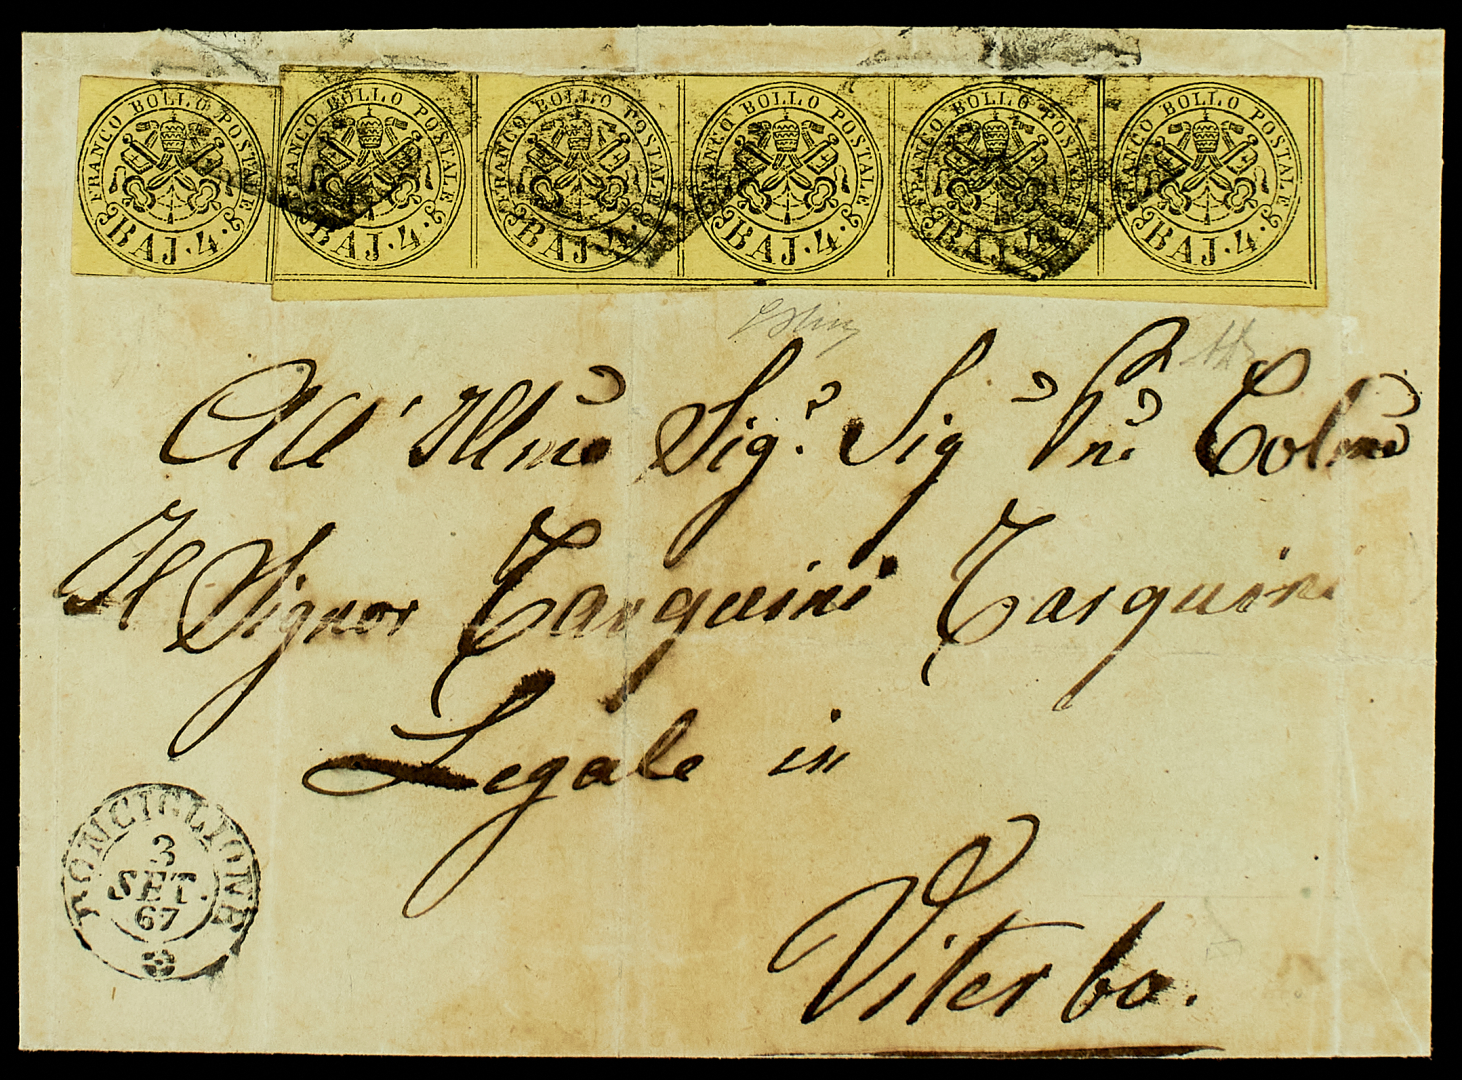 FRANCO BOLLO POSTALE BAJ. 4.
FRANCO BOLLO POSTALE BAJ. 4.
FRANCO BOLLO POSTALE BAJ. 4.
FRANCO BOLLO POSTALE BAJ. 4.
FRANCO BOLLO POSTALE BAJ. 4.
FRANCO BOLLO POSTALE BAJ. 4.
All' Illmo Sigr. Sig Pne Colmo
Il Signor Tarquini Tarquini
Legale in
Viterbo.
RONCIGLIONE
3
SET.
67